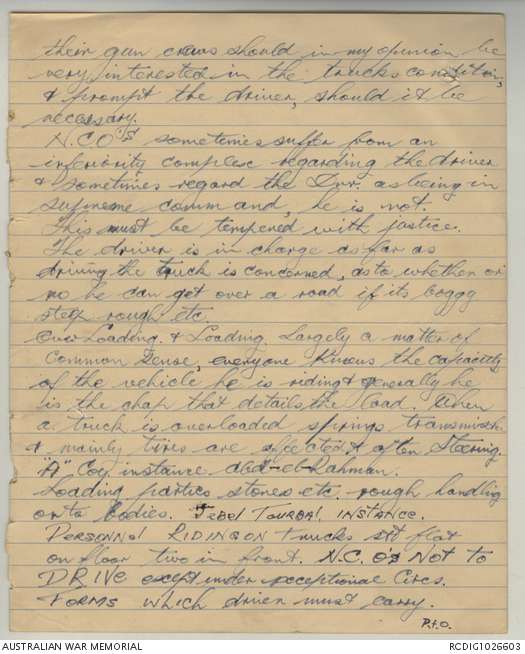 their gun crews should in my opinion be
very interested in the trucks condition,
& prompt the driver, should it be
necessary.
N.CO'S sometimes suffer from an
inferiority complex regarding the driver
& sometimes regard the Dvr. as being in
supreme command, he is not.
This must be tempered with justice.
The driver is in charge as far as
driving the truck is concerned, as to whether or
no he can get over a road if its boggy
steep rough etc.
Over Loading & Loading. Largely a matter of
Common Sense, everyone knows the capacity
of the vehicle he is riding & generally he
is the chap that details the load. When
a truck is overloaded springs transmissn
& mainly tires are effected & often Steering.
"A" Coy instance abd-el-Rahman.
Loading parties stones etc. rough handling
onto bodies. Jebel TOURBAL INSTANCE.
PERSONNEL RIDING ON trucks sit flat
on floor two in front. N.C.O's NOT to
DRIVE except under exceptional Circs.
FORMS which driver must carry.
P.t.O.
AUSTRALIAN WAR MEMORIAL
RCDIG1026603